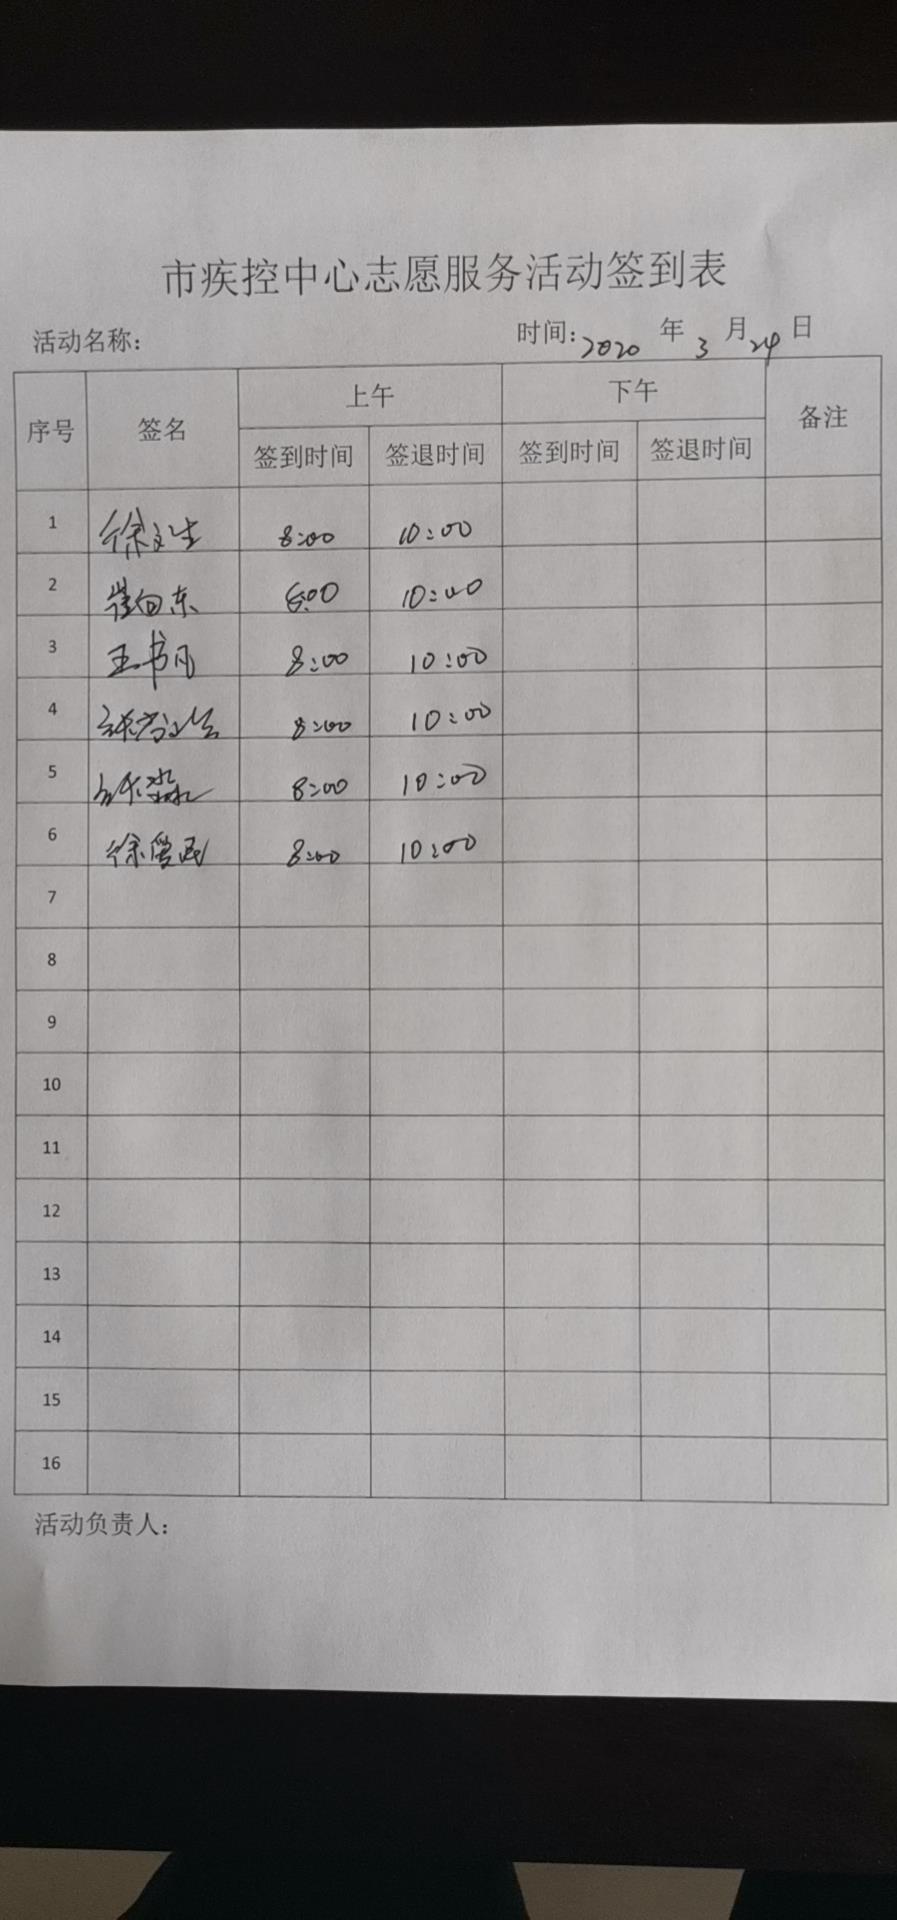 市疾控中心志愿服务活动签到表
活动名称： 时间：2020 年 3 月 24 日
序号 签名 上午 下午 备注
签到时间 签退时间 签到时间 签退时间
1 徐文生 8:00 10:00
2 崔向东 8:00 10:00
3 王书凡 8:00 10:00
4 8:00 10:00
5 8:00 10:00
6 徐爱民 8:00 10:00
7
8
9
10
11
12
13
14
15
16
活动负责人：